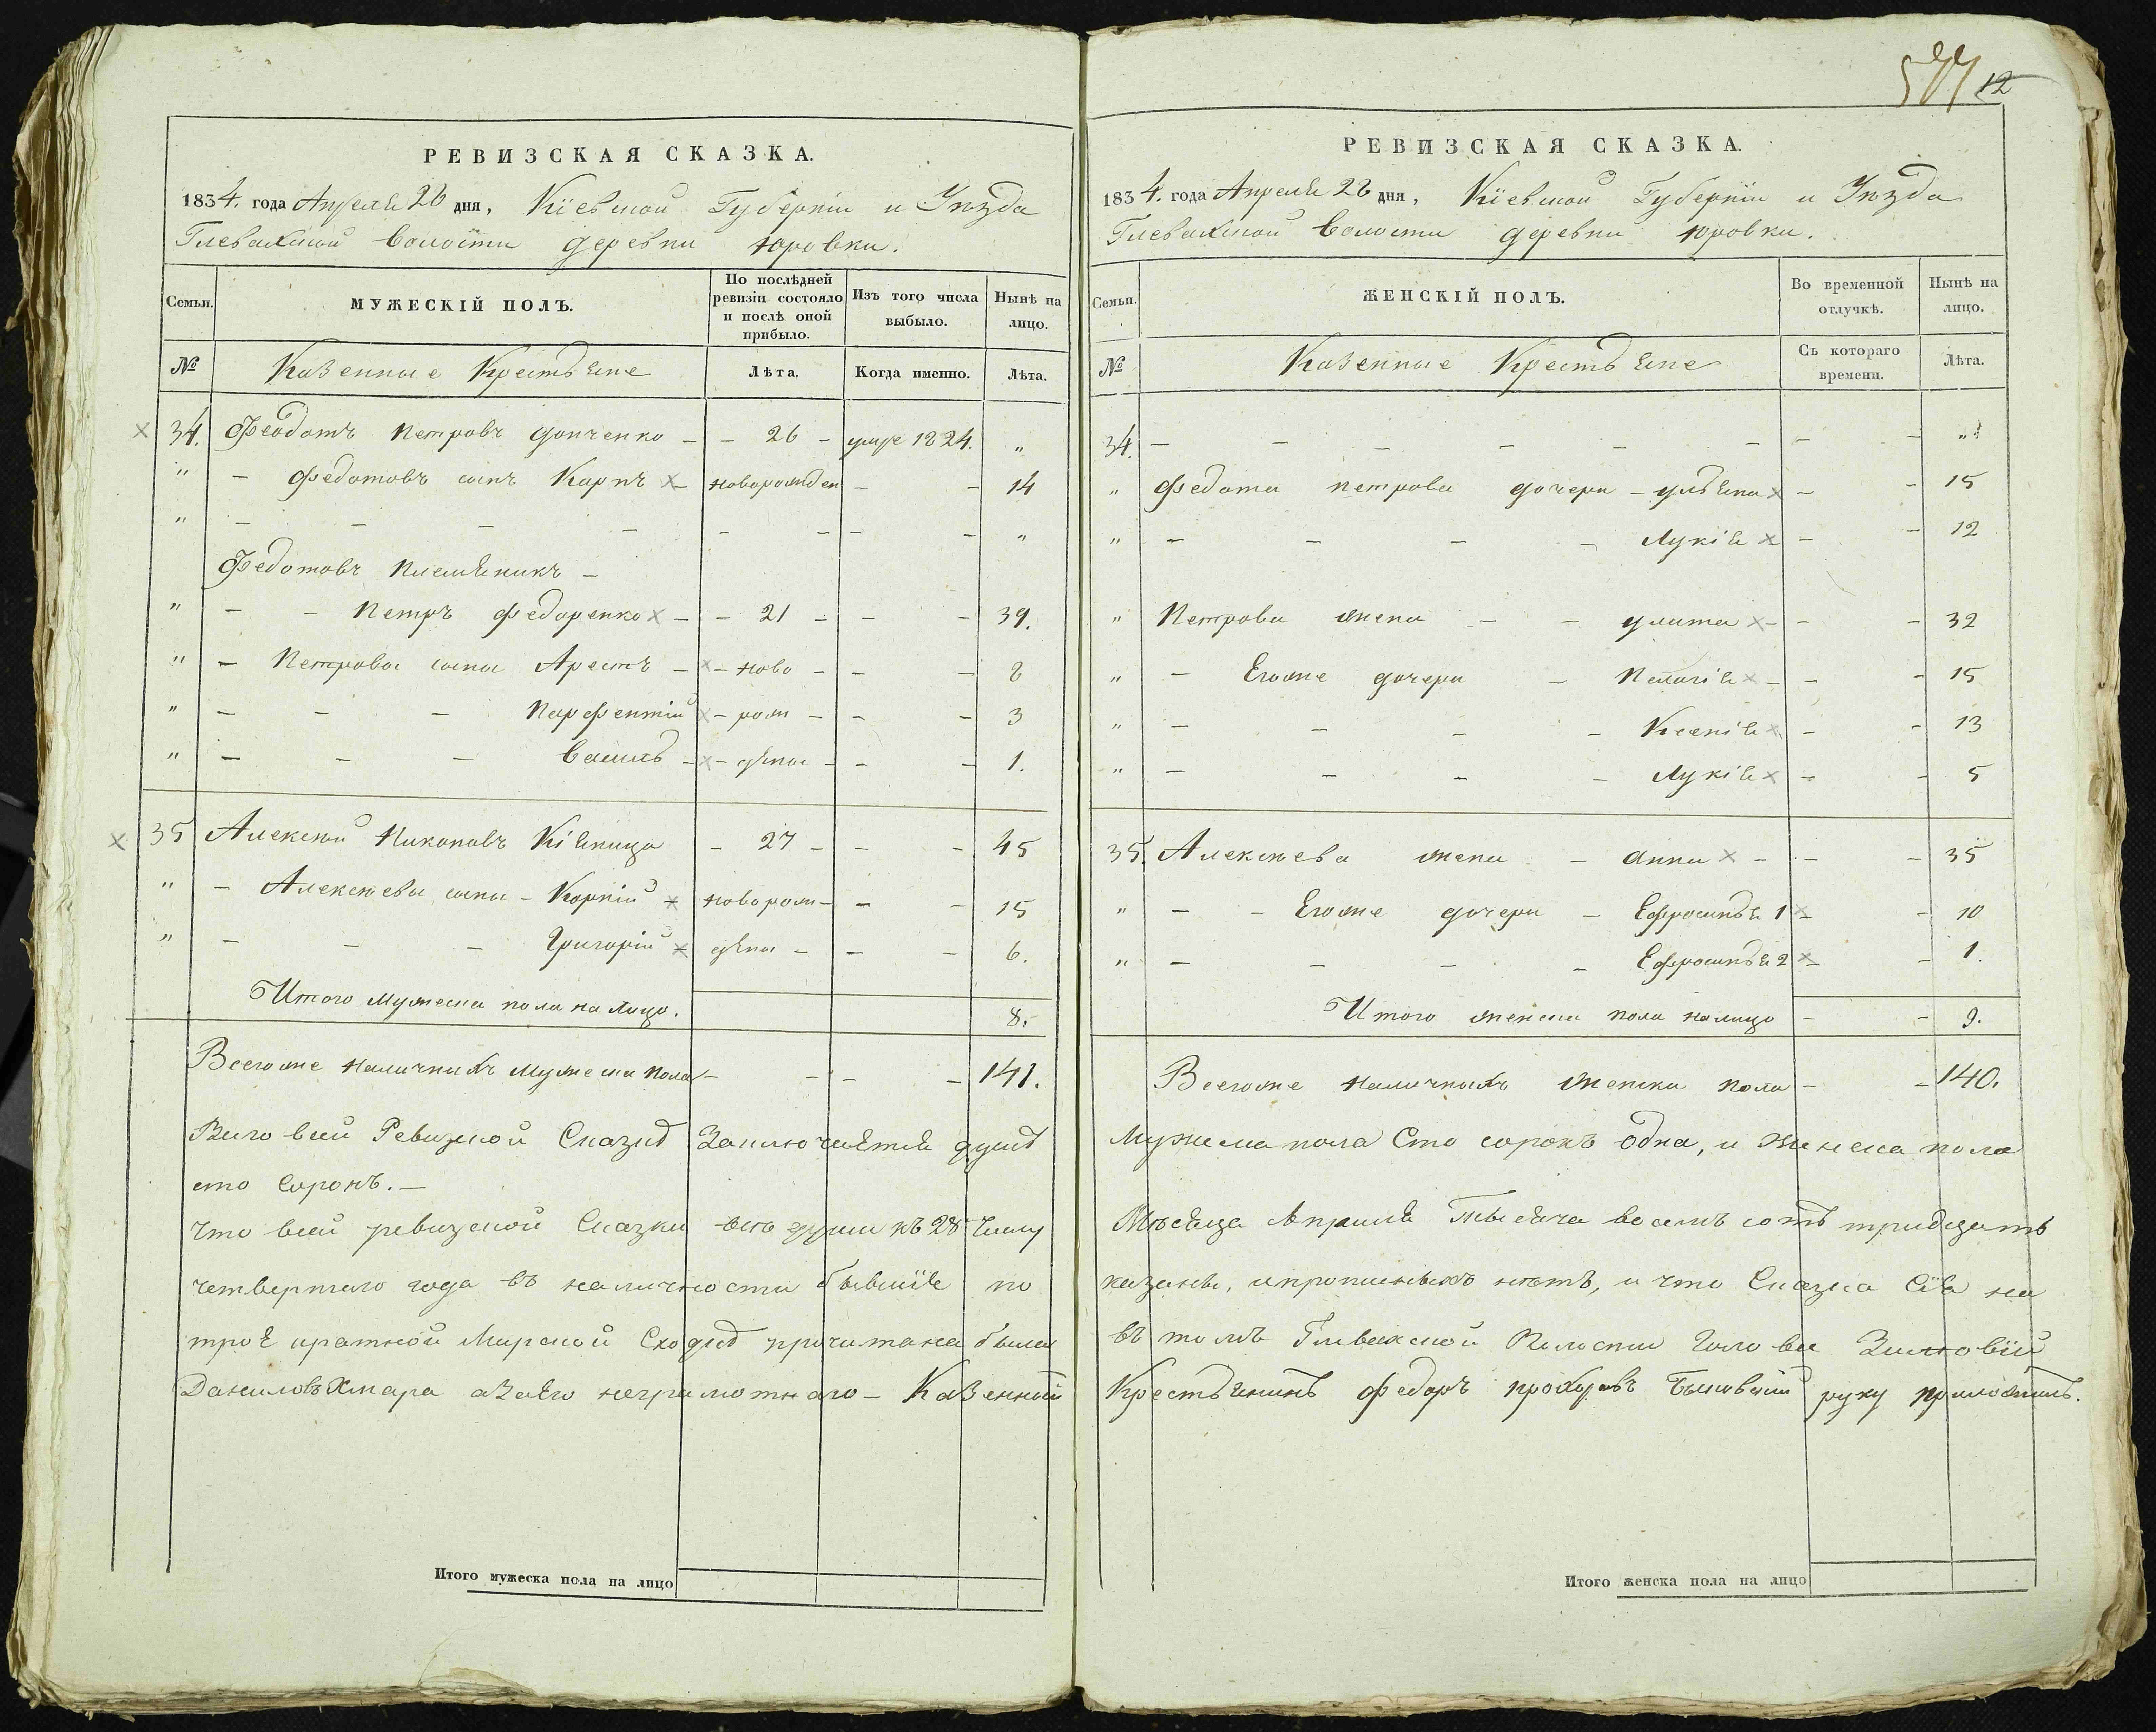 РЕВИЗСКАЯ СКАЗКА.
1834. года Апреля 28 дня, Кіевской Губерніи и Уѣзда
Глевахской волости деревни Юровки.
Семьи. МУЖЕСКІЙ ПОЛЪ. По послѣдней ревизіи состояло и послѣ оной прибыло. Изъ того числа выбыло. Нынѣ на лицо.
№ Казенные Крестьяне Лѣта. Когда именно. Лѣта.
34. Феодотъ Петровъ Донченко - - 26 - умре 1824. "
" - Федотовъ сынъ Карпъ новорожден - - 14
" - - - - - - - - "
Федотовъ племяникъ -
" - - Петръ Федоренко - - 21 - - - 39.
" - Петровы сыны Арестъ - - ново - - - 8
" - - - Парфентій - рож - - - 3
" - - - Василь - - дены - - - 1.
35 Алексѣй Никоновъ - 27 - - - 45
" - Алексѣевы сыны - Корній новорож - - - 15
" - - - Григорій дены - - - 6.
Итого мужеска пола на лицо. 8.
Всегоже наличныхъ мужеска пола - - - - 141.
Всего въ сей Ревизской Сказкѣ Заключается душъ
сто сорокъ. -
Что въ сей ревизской Сказки всѣ души къ 28 числу
четвертаго года въ наличности бывшіе по
трое кратной Мирской Сходкѣ прочитана была
Даниловъ Хмара а за его неграмотнаго - Казенный
Итого мужеска пола на лицо
577 12
РЕВИЗСКАЯ СКАЗКА.
1834. года Апреля 28 дня, Кіевской Губерніи и Уѣзда
Глевахской волости деревни Юровки.
Семьи. ЖЕНСКІЙ ПОЛЪ. Во временной отлучкѣ. Нынѣ на лицо.
№ Казенные Крестьяне Съ котораго времени. Лѣта.
34. - - - - - - - "
" Федота Петрова дочери - Ульяна - - 15
" - - - - Лукія - - 12
" Петрова жена - - Улита - - - 32
" - Егоже дочери - Пелагія - - - 15
" - - - - Ксенія - - 13
" - - - - Лукія - - 5
35. Алексѣева жена - Анна - - - 35
" - - Егоже дочери - Ефросинья 1 - - 10
" - - - - Ефросинья 2 - - 1.
Итого женска пола налицо - - 9.
Всегоже наличныхъ женска пола - - 140.
Мужеска пола Сто сорокъ одна, и женска пола
Мѣсяца Апреля Тысяча восемь сотъ тридцать
казаны, ипрописныхъ нѣтъ, и что Сказка Сія на
въ томъ Глевахской Волости Голова Зиновій
Крестьянинъ Федоръ руку приложилъ.
Итого женска пола на лицо